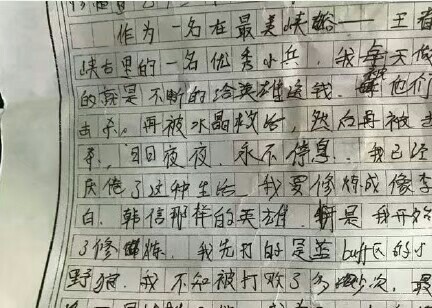 作为一名在最美峡谷——王者
峡谷里的一名优秀小兵，我每天做
的就是不断的给英雄送钱，被他们
击杀。再被水晶救活，然后再被击
杀，日日夜夜，永不停息，我已经
厌倦了这种生活，我要修炼成像李
白、韩信那样的英雄，于是我开始
了修炼。我先打的是蓝buff区的小
野狼，我不知被打败了多少次，最